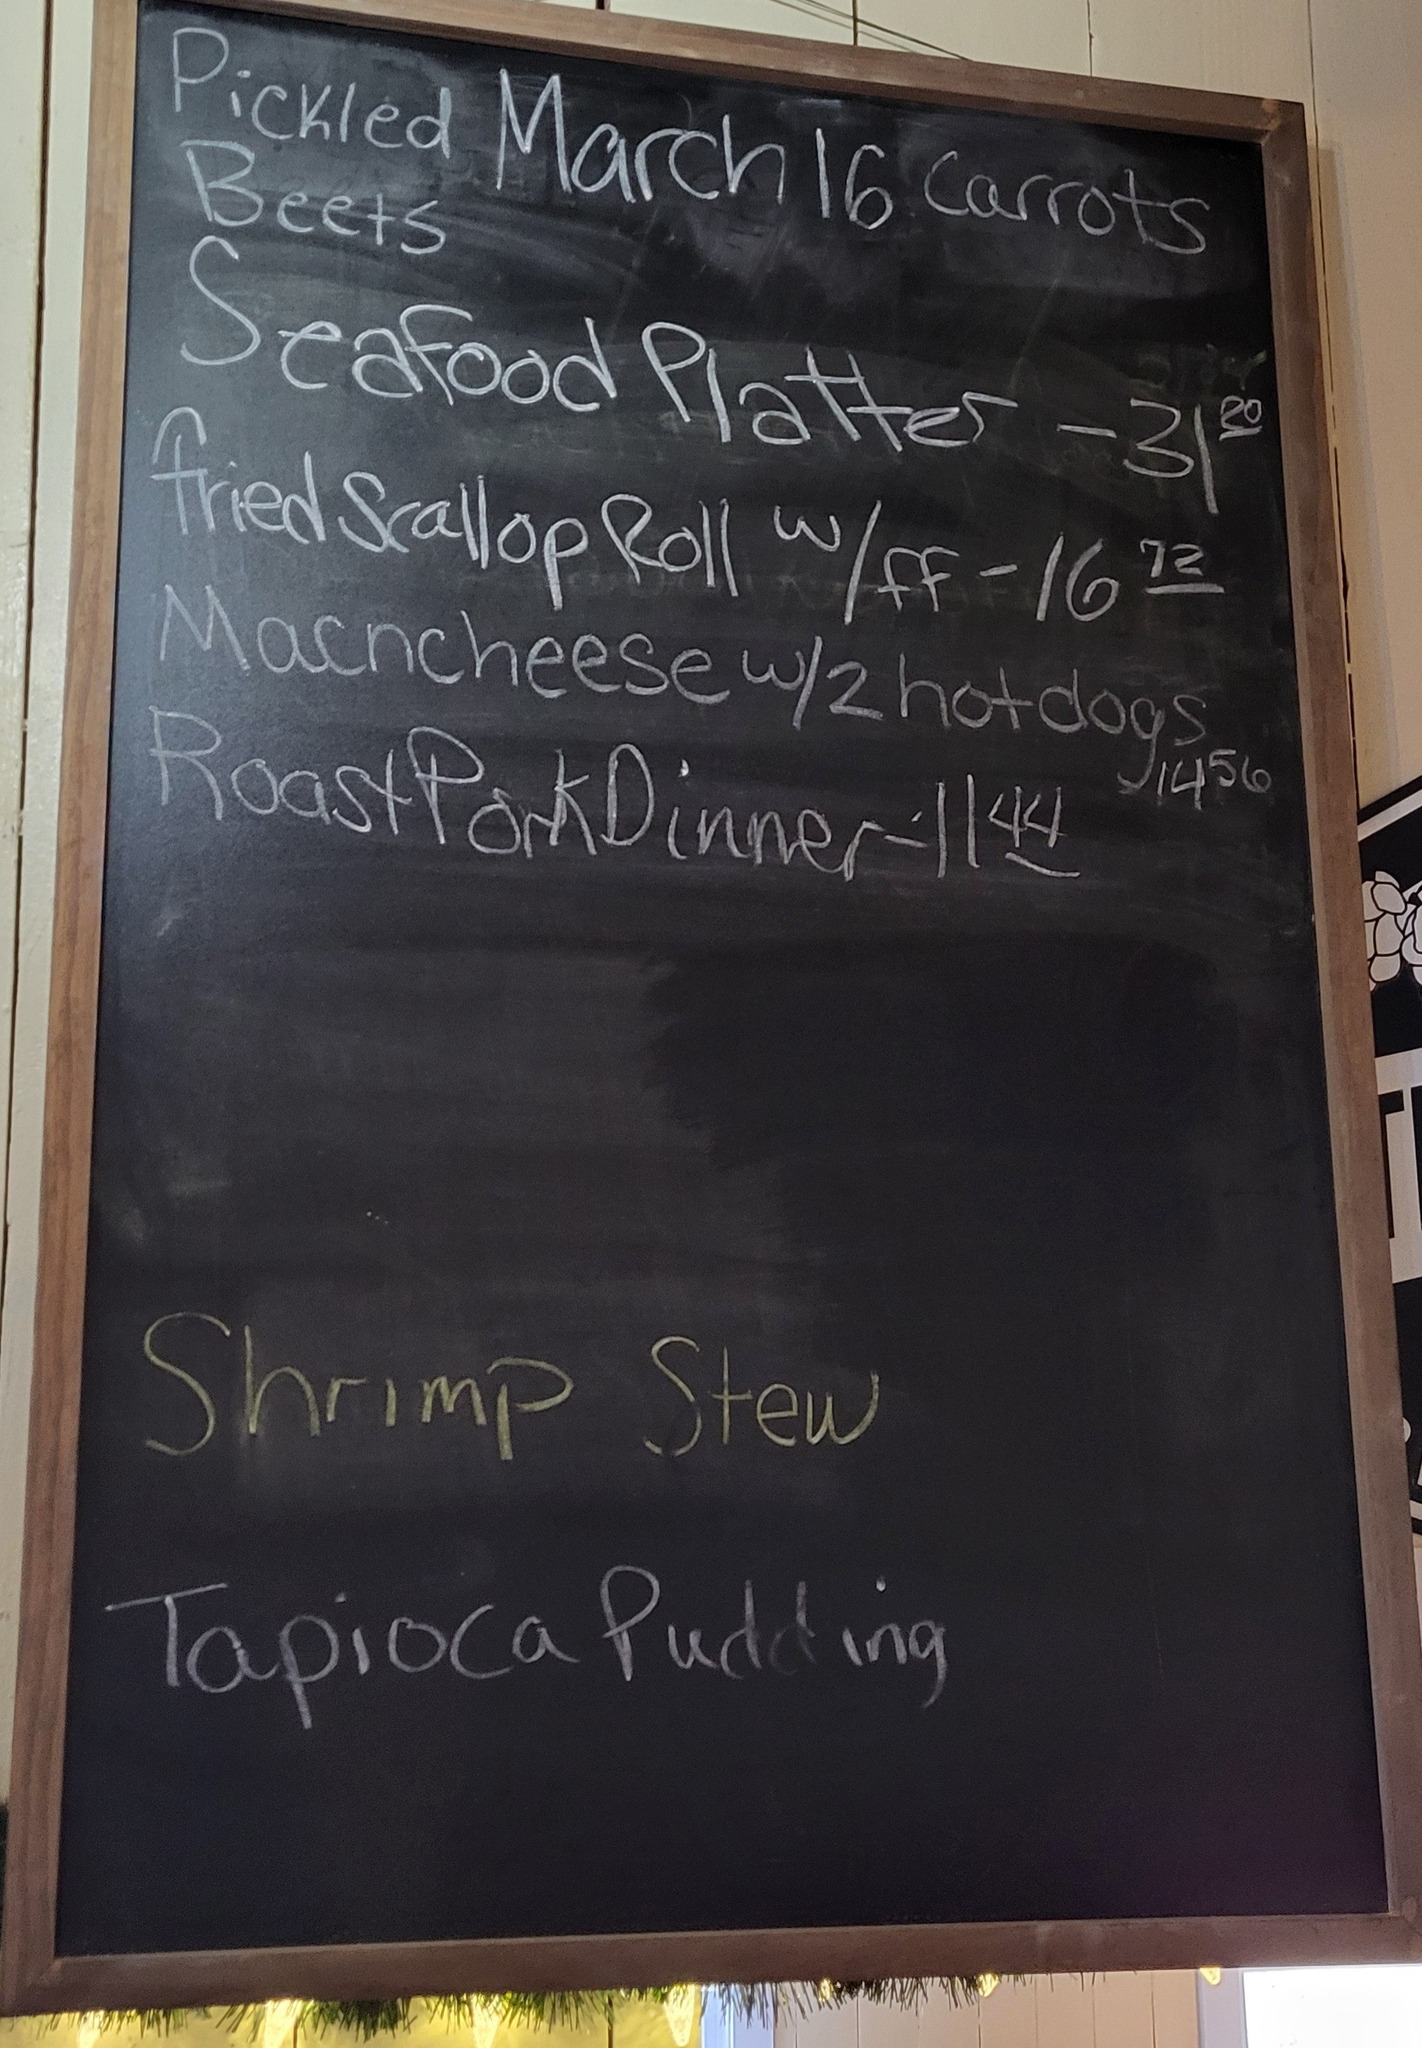 Pickled March 16 Carrots
Beets
Seafood Platter - 31 20
fried Scallop Roll w/ff - 16 72
Macncheese w/2 hotdogs
14 56
Roast Pork Dinner - 11 44
Shrimp Stew
Tapioca Pudding